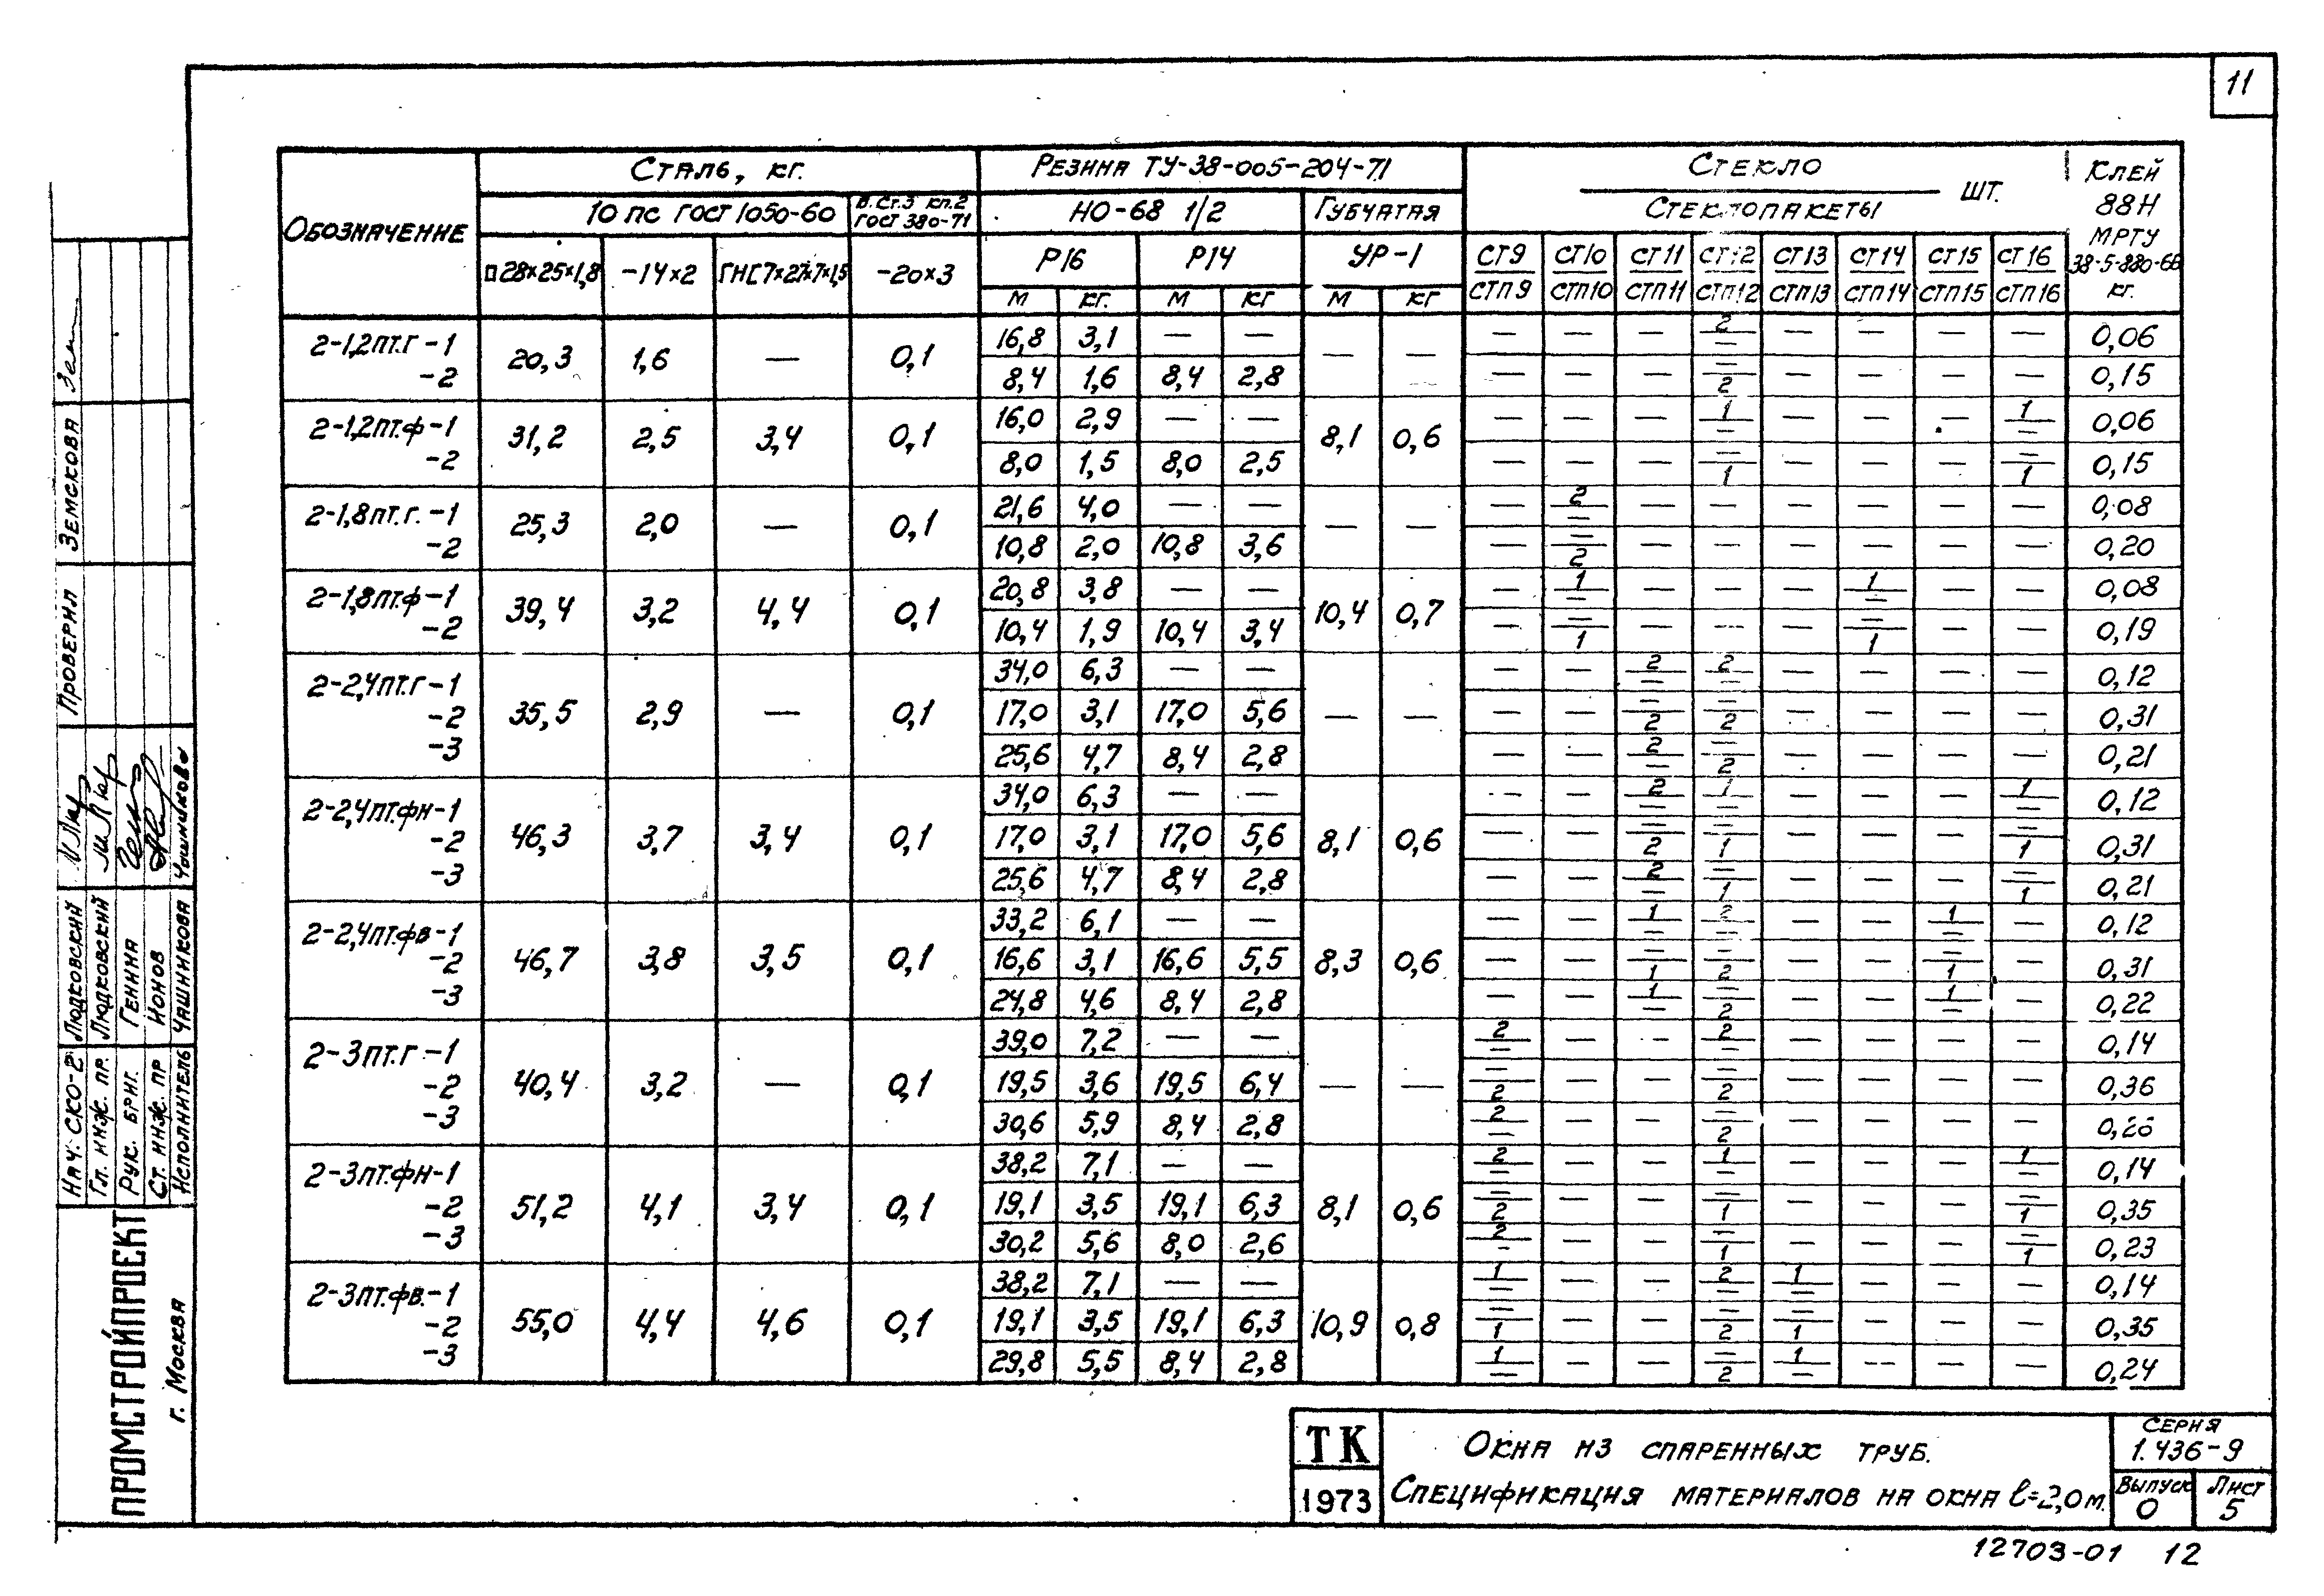 11
Обозначение
Сталь, кг.
Резина ТУ-38-005-204-71
Стекло
Стеклопакеты
шт.
Клей 88Н МРТУ 38-5-880-66 кг.
10 пс ГОСТ 1050-60
В.Ст.3 кп.2 ГОСТ 380-71
НО-68 1/2
Губчатая
П28×25×1,8
-14×2
ГН[7×27×7×1,5
-20×3
Р16
Р14
УР-1
м кг. м кг м кг
СТ9 СТ10 СТ11 СТ12 СТ13 СТ14 СТ15 СТ16
СТП9 СТП10 СТП11 СТП12 СТП13 СТП14 СТП15 СТП16
2-1,2пт.г-1 20,3 1,6 — 0,1 16,8 3,1 — — — — — — — 2/— — — — — 0,06
-2 8,4 1,6 8,4 2,8 — — — —/2 — — — — 0,15
2-1,2пт.ф-1 31,2 2,5 3,4 0,1 16,0 2,9 — — 8,1 0,6 — — — 1/— — — — 1/— 0,06
-2 8,0 1,5 8,0 2,5 — — — —/1 — — — —/1 0,15
2-1,8пт.г.-1 25,3 2,0 — 0,1 21,6 4,0 — — — — — 2/— — — — — — — 0,08
-2 10,8 2,0 10,8 3,6 — —/2 — — — — — — 0,20
2-1,8пт.ф-1 39,4 3,2 4,4 0,1 20,8 3,8 — — 10,4 0,7 — 1/— — — — 1/— — — 0,08
-2 10,4 1,9 10,4 3,4 — —/1 — — — —/1 — — 0,19
2-2,4пт.г-1 35,5 2,9 — 0,1 34,0 6,3 — — — — — — 2/— 2/— — — — — 0,12
-2 17,0 3,1 17,0 5,6 — — —/2 —/2 — — — — 0,31
-3 25,6 4,7 8,4 2,8 — — 2/— —/2 — — — — 0,21
2-2,4пт.фн-1 46,3 3,7 3,4 0,1 34,0 6,3 — — 8,1 0,6 — — 2/— 1/— — — — 1/— 0,12
-2 17,0 3,1 17,0 5,6 — — —/2 —/1 — — — —/1 0,31
-3 25,6 4,7 8,4 2,8 — — 2/— —/1 — — — —/1 0,21
2-2,4пт.фв-1 46,7 3,8 3,5 0,1 33,2 6,1 — — 8,3 0,6 — — 1/— 2/— — — 1/— — 0,12
-2 16,6 3,1 16,6 5,5 — — —/1 —/2 — — —/1 — 0,31
-3 24,8 4,6 8,4 2,8 — — 1/— —/2 — — 1/— — 0,22
2-3пт.г-1 40,4 3,2 — 0,1 39,0 7,2 — — — — 2/— — — 2/— — — — — 0,14
-2 19,5 3,6 19,5 6,4 —/2 — — —/2 — — — — 0,36
-3 30,6 5,9 8,4 2,8 2/— — — —/2 — — — —
2-3пт.фн-1 51,2 4,1 3,4 0,1 38,2 7,1 — — 8,1 0,6 2/— — — 1/— — — — 1/— 0,14
-2 19,1 3,5 19,1 6,3 —/2 — — —/1 — — — —/1 0,35
-3 30,2 5,6 8,0 2,6 2/— — — —/1 — — — —/1 0,23
2-3пт.фв.-1 55,0 4,4 4,6 0,1 38,2 7,1 — — 10,9 0,8 1/— — — 2/— 1/— — — — 0,14
-2 19,1 3,5 19,1 6,3 —/1 — — —/2 —/1 — — — 0,35
-3 29,8 5,5 8,4 2,8 1/— — — —/2 1/— — — — 0,24
ТК
1973
Окна из спаренных труб.
Спецификация материалов на окна ℓ=2,0м.
Серия
1.436-9
Выпуск
0
Лист
5
12703-01 12
Проверил Земскова
Нач. СКО-2 Людковский
Гл. инж. пр. Людковский
Рук. бриг. Генина
Ст. инж. пр Ионов
Исполнитель Чашникова
ПРОМСТРОЙПРОЕКТ
г. Москва